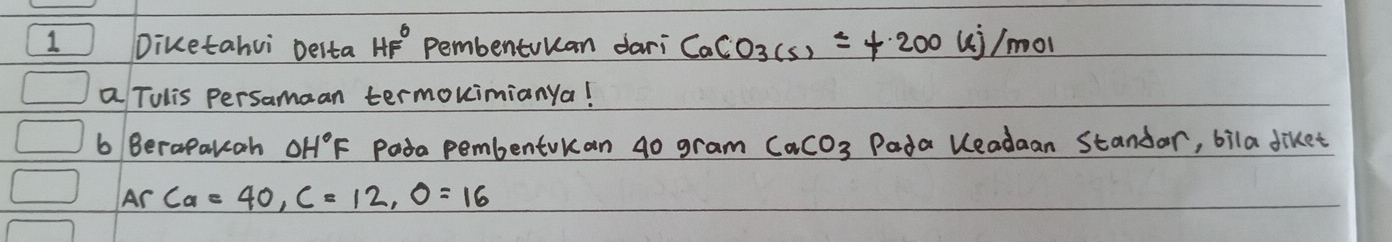 1 Diketahui Delta HF° Pembentukan dari CaCO3(s) = +.200 kj/mol
a Tulis persamaan termokimianya!
b Berapakah ΔH°F pada pembentukan 40 gram CaCO3 Pada Keadaan Standar, bila diket
Ar Ca = 40, C = 12, O = 16